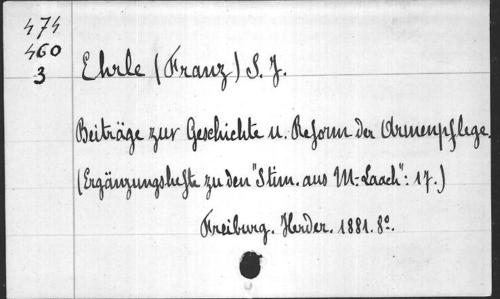 474
460
3
Ehrle (Franz) S. J.
Beiträge zur Geschichte u. Reform der Armenpflege
(Ergänzungshefte zu den "Stim. aus M-Laach": 17.)
Freiburg. Herder. 1881. 8º.